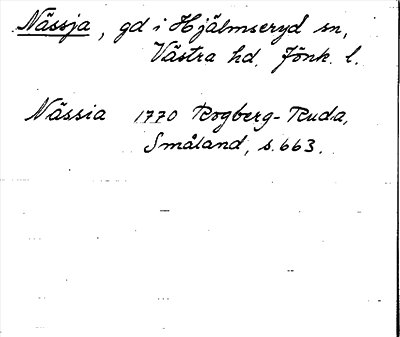 Nässja, gd i Hjälmseryd sn,
Västra hd. Jönk. l.
Nässia 1770 Rogberg-Ruda,
Småland, s. 663.